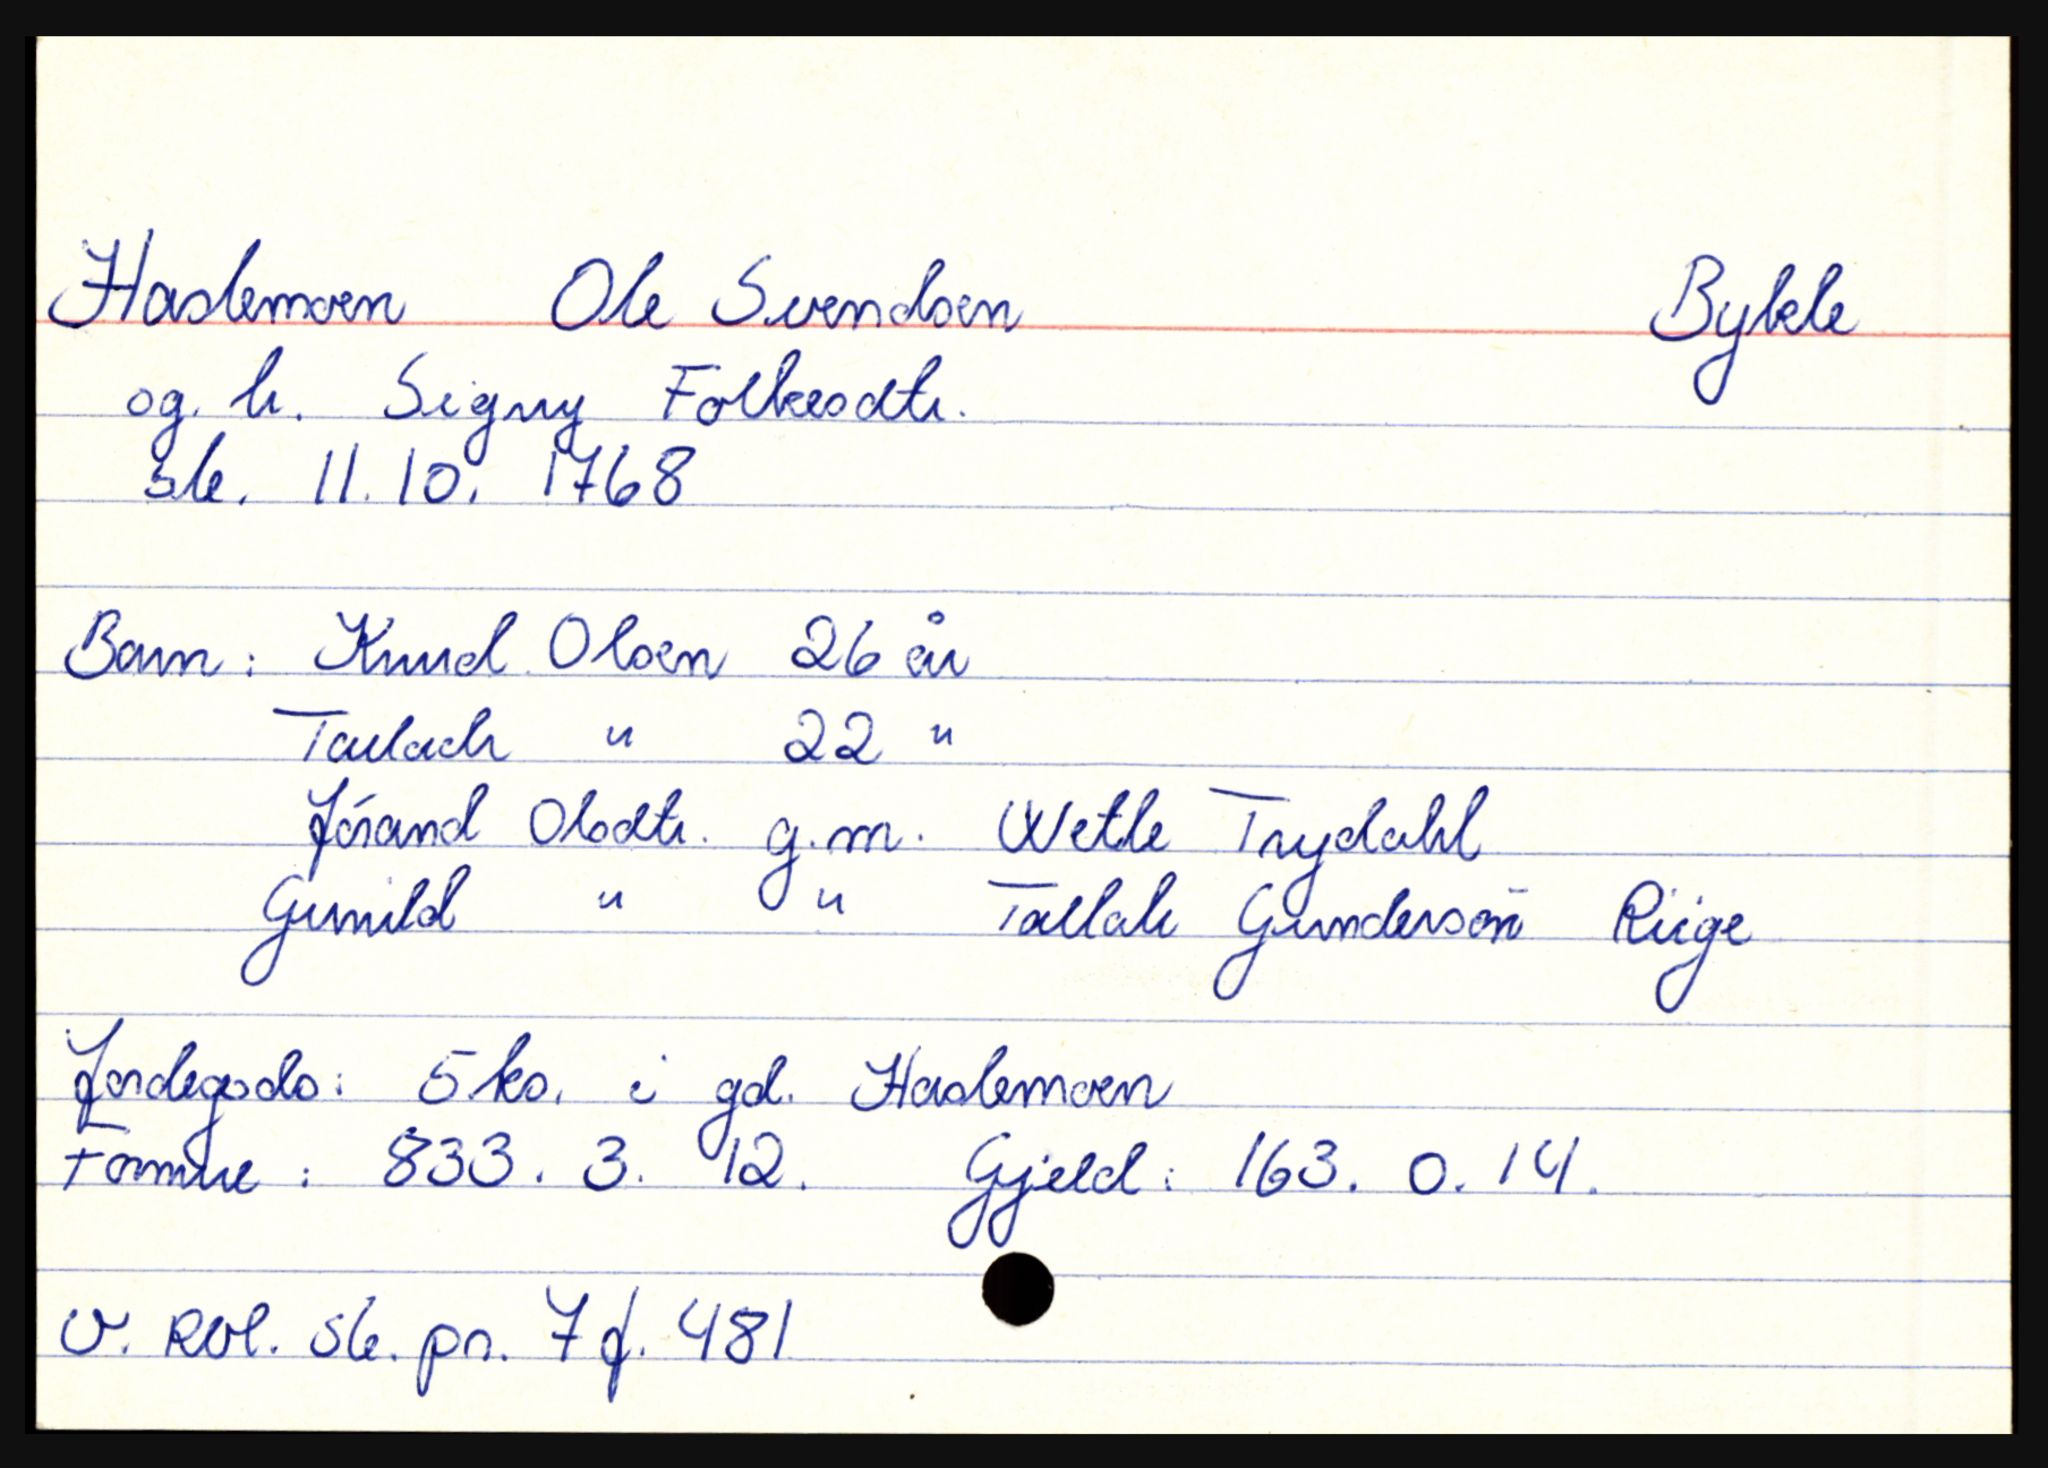 Haslemoen Ole Svendsen Bykle
og. h. Signy Folkesdtr.
sk. 11.10. 1768
Barn: Knud Olsen 26 år
Tarlach " 22 "
Jórand Olsdtr. g.m. Wetle Trydahl
Gunild " " Tallak Gundersøn Riige
Jordegods: 5 ks. i gd. Haslemoen
Formue: 833. 3. 12. Gjeld: 163. 0. 14.
V. Rbl. sk. pr. 7 f. 481